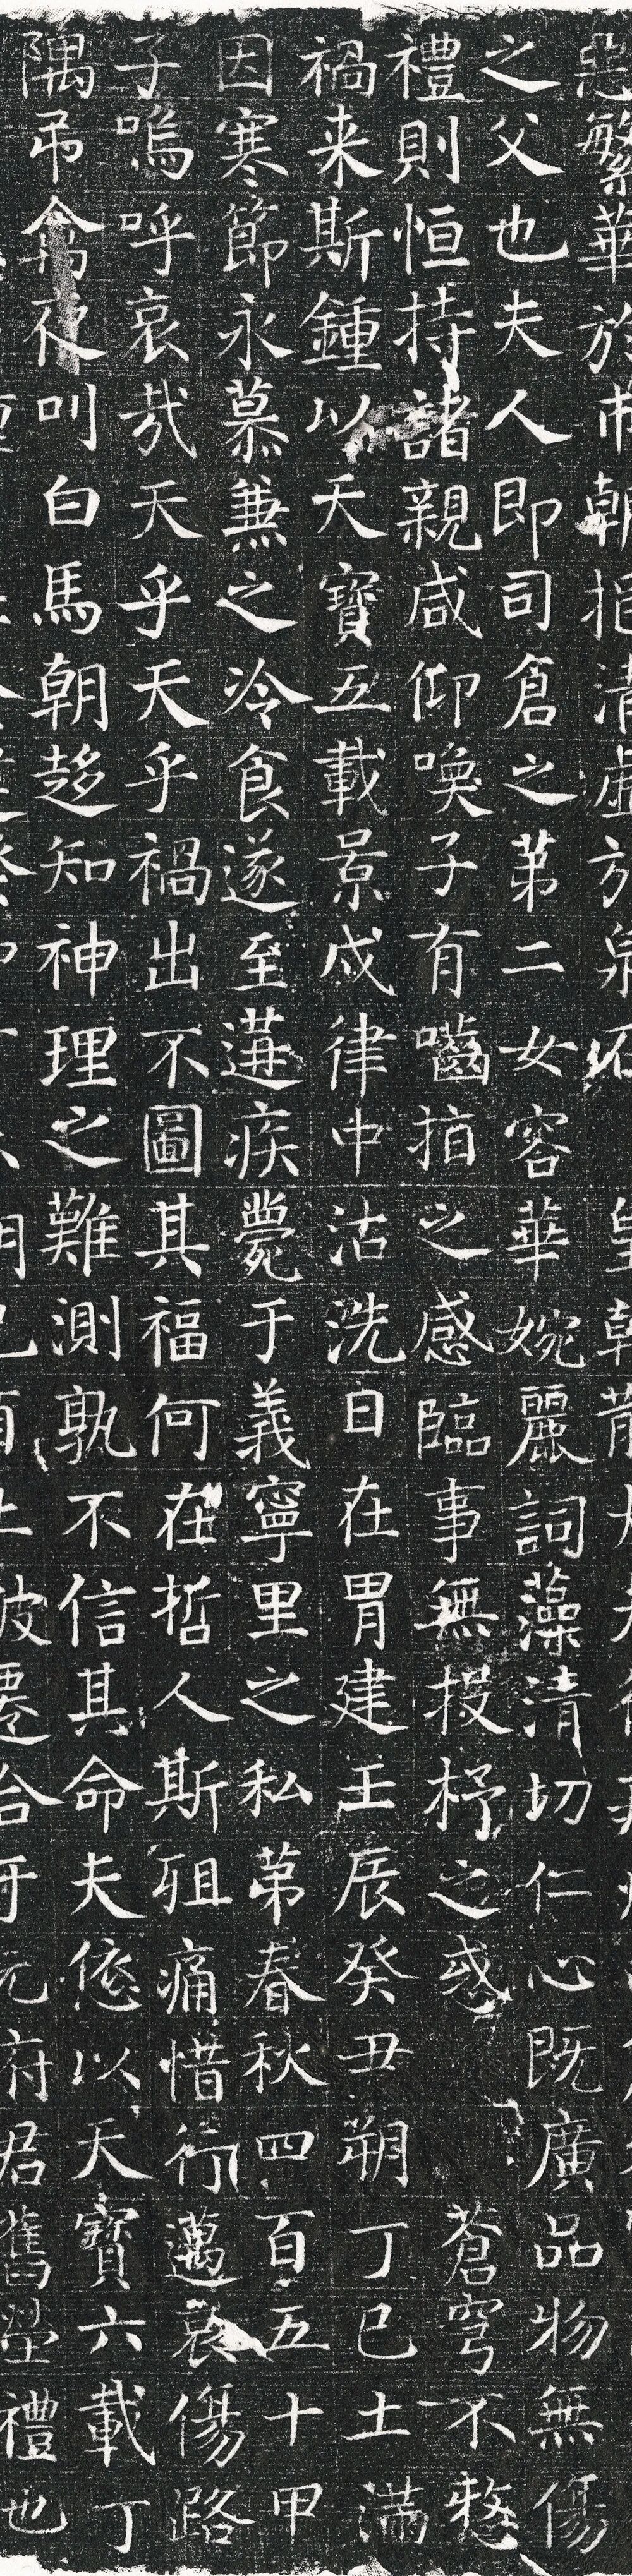 惡繁華於市朝挹清虛於泉石 皇朝散
之父也夫人即司倉之苐二女容華婉麗詞藻清切仁心既廣品物無傷
禮則恒持諸親咸仰喚子有嚙指之感臨事無投杼之惑 蒼穹不憖
禍来斯鍾以天寶五載景戌律中沽洗日在胃建壬辰癸丑朔丁巳土滿
因寒節永慕兼之冷食遂至遘疾薨于義寧里之私苐春秋四百五十甲
子嗚呼哀哉天乎天乎禍出不圖其福何在哲人斯殂痛惜行邁哀傷路
隅吊禽夜叫白馬朝趍知神理之難測孰不信其命夫悠以天寶六載丁
府君舊塋禮也